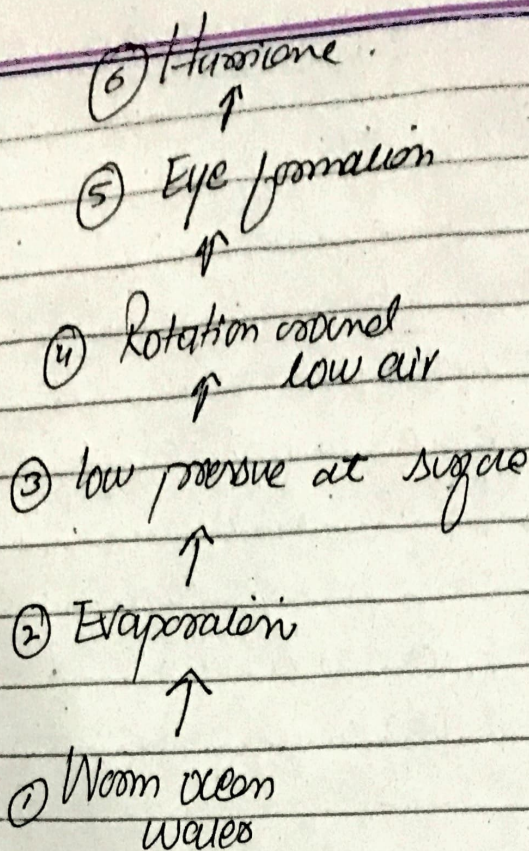 ⑥ Hurricane.
↑
⑤ Eye formation
↑
④ Rotation around
low air
↑
③ low pressure at surface
↑
② Evaporation
↑
① Warm ocean
water